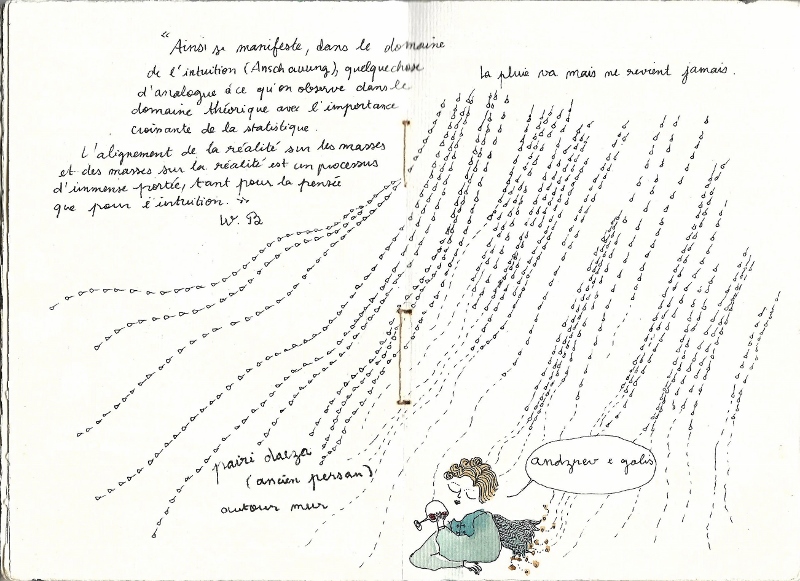 “Ainsi se manifeste, dans le domaine
de l'intuition (Anschauung), quelque chose
d'analogue à ce qu'on observe dans le
domaine théorique avec l'importance
croinante de la statistique.
L'alignement de la réalité sur les masses
et des masses sur la réalité est un processus
d'immense portée, tant pour la pensée
que pour l'intuition.”
W. B
La pluie va mais ne revient jamais.
pairi daeza
(ancien persan)
autour mur
andzrev e galis